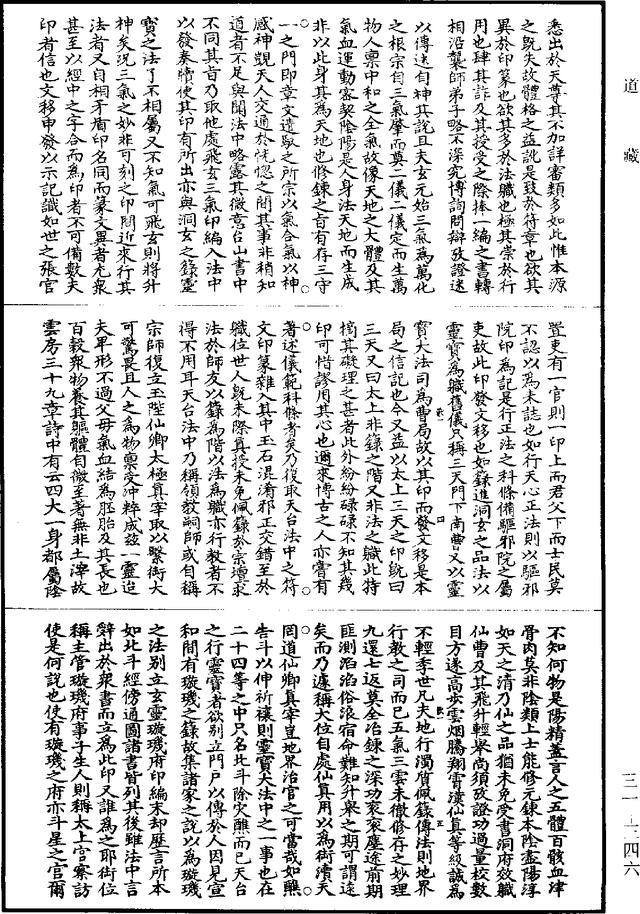 道藏
悉出於天尊其不加詳審類多如此惟本源
之既失故體格之益訛是致於符章也欲其
異於印篆也欲其多於法職也極其崇於行
用也肆其詐及其授受之際捧一編之書轉
相沿襲師弟子略不深究博詢問辯攷證迷
以傳迷自神其說且夫玄元始三氣為萬化
之根宗自三氣肇而奠二儀二儀定而生萬
物人禀中和之全氣故像天地之大體及其
氣血運動客契陰陽是人身法天地而生成
非以此身其為天地也修鍊之旨有存三守
一之門即章文遣馭之所宗以氣合氣以神
感神觀天人交通於恍惚之間其事非稍知
道者不足與聞法中略露其微意台山書中
不同其旨乃取他處飛玄三氣印編入法中
以發奏牘使其印有所出亦與洞玄之錄靈
寶之法了不相屬又不知氣可飛玄則將升
神矣況三氣之妙非可刻之印間近來行其
法者又自相矛盾印名同而篆文異者尤衆
甚至以經中之字合而為印者不可備數夫
印者信也文移申發以示記識如世之張官
置吏有一官則一印上而君父下而士民莫
不認以為未誌也如行天心正法則以驅邪
院印為記是行正法之科條備驅邪院之屬
吏故此印發文移也如錄進洞玄之品法以
靈寶為職舊儀只稱三天門下南曹又以靈
寶大法司為曹局故以其印而發文移是本
局之信記也今又益以太上三天之印既曰
三天又曰太上非錄之階又非法之職此特
摘其礙理之甚者此外紛紛碌碌不知其幾
印可惜謬用其心也邇來博古之人亦嘗有
著述儀範科條者矣乃復取天台法中之符
文印篆雜入其中玉石混淆邪正交錯至於
職位世人既未際真授未免佩錄於宗壇求
法於師友以錄為階以法為職亦行教者不
得不用耳天台法中乃稱領教嗣師或自稱
宗師復立玉陛仙卿太極真宰取以繫銜大
可驚畏且人之為物禀受沖粹成茲一靈迨
夫卑形不過父母氣血結為胚胎及其長也
百穀衆物養其軀體自微至著無非土滓故
雲房三十九章詩中有云四大一身都屬陰
不知何物是陽精蓋言人之五體百骸血津
骨肉莫非陰類上士能修元鍊本陰盡陽淳
如天之清乃仙之品猶未免受書洞府效職
仙曹及其飛升輕舉尚須攷證功過量校數
目方遂高步雲烟騰翔霄漢仙真等級誠為
不輕季世凡夫地行濁質佩錄傳法則地界
行教之司而已五氣三雲未徹修存之妙理
九還七返莫全冶鍊之深功衮衮塵途前期
匪測滔滔俗浪宿命難知升舉之期可謂遠
矣而乃遽稱大位自處仙真用以為銜瀆天
罔道仙卿真宰豈地界治官之可當哉如醮
告斗以伸祈禳則靈寶大法中之一事也在
二十四等之中只名北斗除灾醮而已天台
之行靈寶者欲別立門戶以傳於人因見宣
和間有璇璣之錄故集諸家之說以為璇璣
之法別立玄靈璇璣府印編末却歷言所本
如北斗經傍通圖諸書皆列其後雖法中言
辭出於衆書而立為此印又誰為之耶銜位
稱主管璇璣府事子生人則稱太上官察訪
使是何說也使有璇璣之府亦斗星之官爾